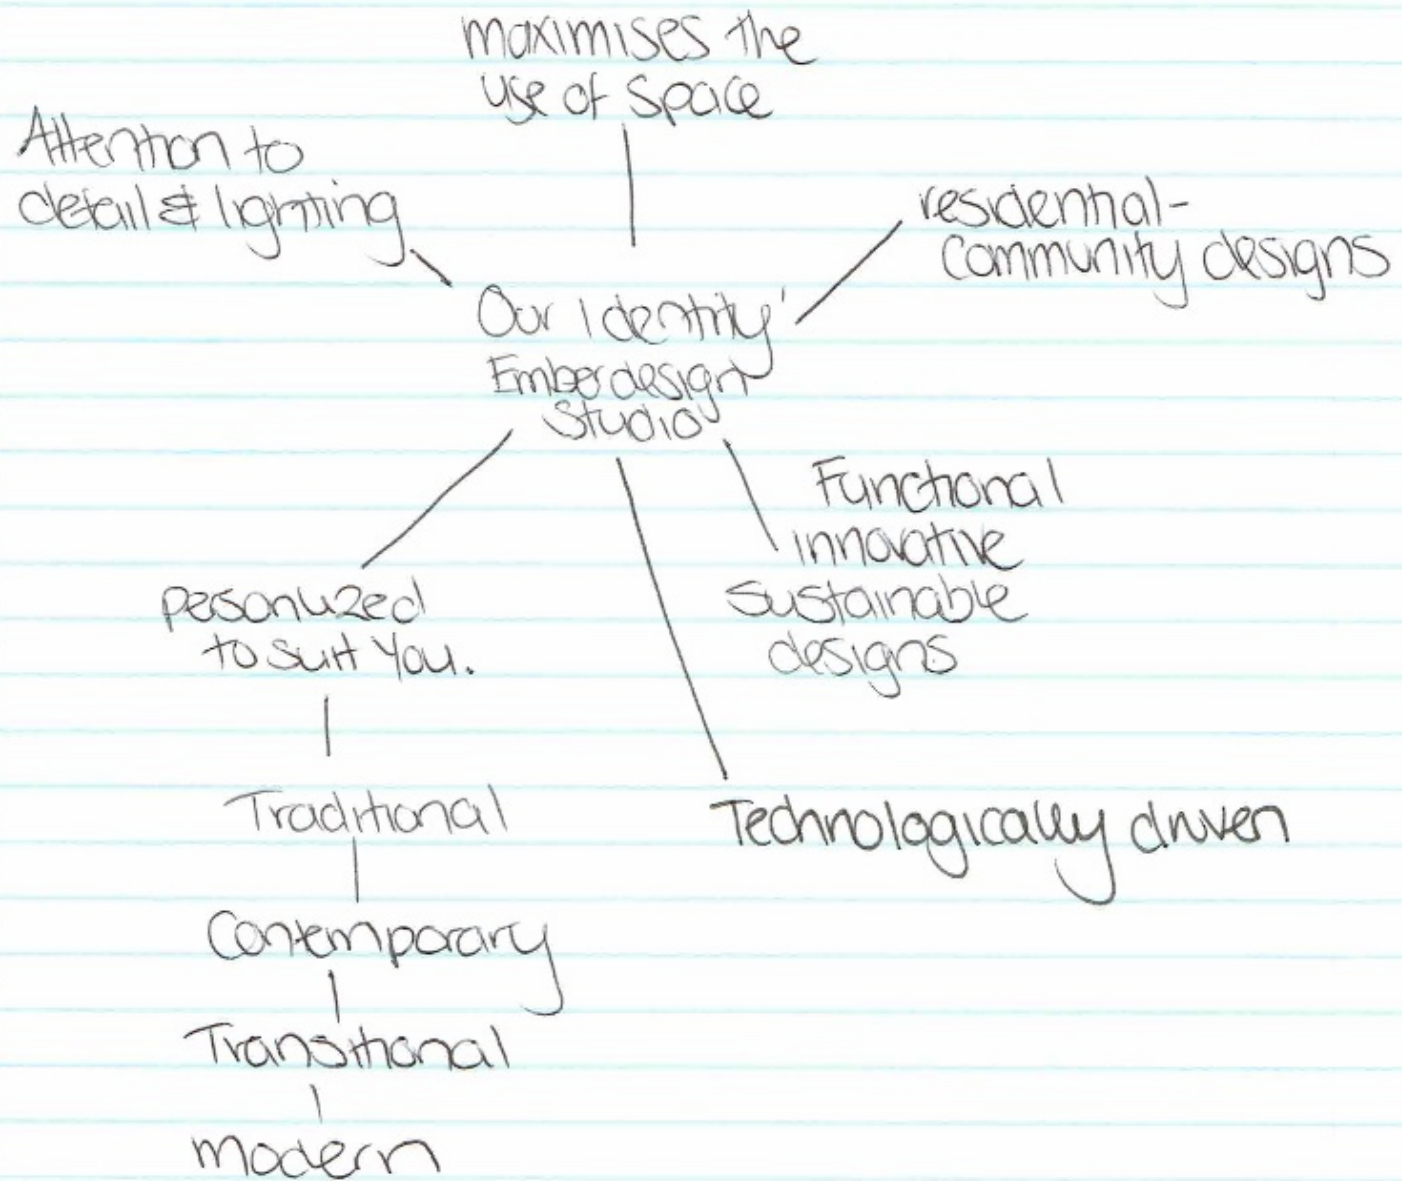 maximises the
use of space
Attention to
detail & lighting
residential-
community designs
Our Identity'
Emberdesign
Studio
Functional
innovative
sustainable
designs
personlized
to suit you.
Traditional
Technologically driven
Contemporary
Transitional
modern